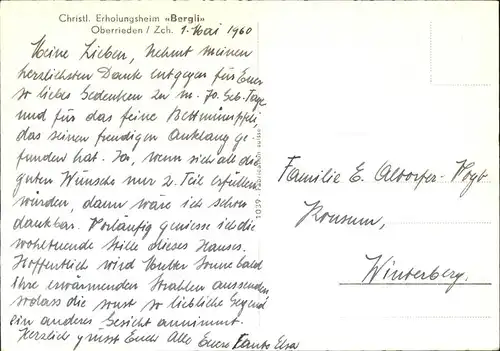 Christl. Erholungsheim «Bergli»
Oberrieden / Zch. 1. Mai 1960
Meine Lieben, nehmt meinen
herzlichsten Dank entgegen für Euer
so liebes Gedenken zu m. 70. Geb. Tage
und für das feine Bettmümpfeli,
das seinen freudigen Anklang ge-
funden hat. Ja, wenn sich all die
guten Wünsche nur z. Teil erfüllen
würden, dann wäre ich schon
dankbar. Vorläufig geniesse ich die
wohltuende Stille dieses Hauses.
Hoffentlich wird Mutter Sonne bald
ihre erwärmenden Strahlen aussenden,
sodass die sonst so liebliche Gegend
ein anderes Gesicht annimmt.
Herzlich grüsst Euch Alle Euere Tante Elsa
1039 - Fabrication suisse
Familie E. Altorfer-Vogt
Konsum,
Winterberg.